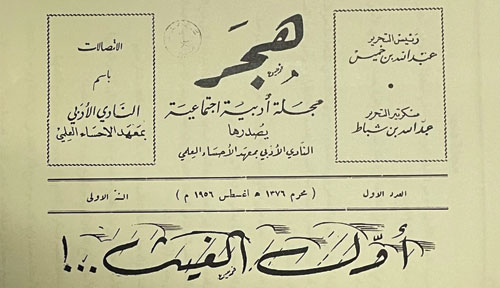 هجر
مجلة أدبية اجتماعية
يصدرها
النادي الأدبي بمعهد الأحساء العلمي
رئيس التحرير
عبد الله بن خميس
سكرتير التحرير
عبد الله بن شباط
الاتصالات
باسم
النادي الأدبي
بمعهد الاحساء العلمي
العدد الاول
( محرم ١٣٧٦ هـ اغسطس ١٩٥٦ م )
السنة الاولى
أول الغيث ..!